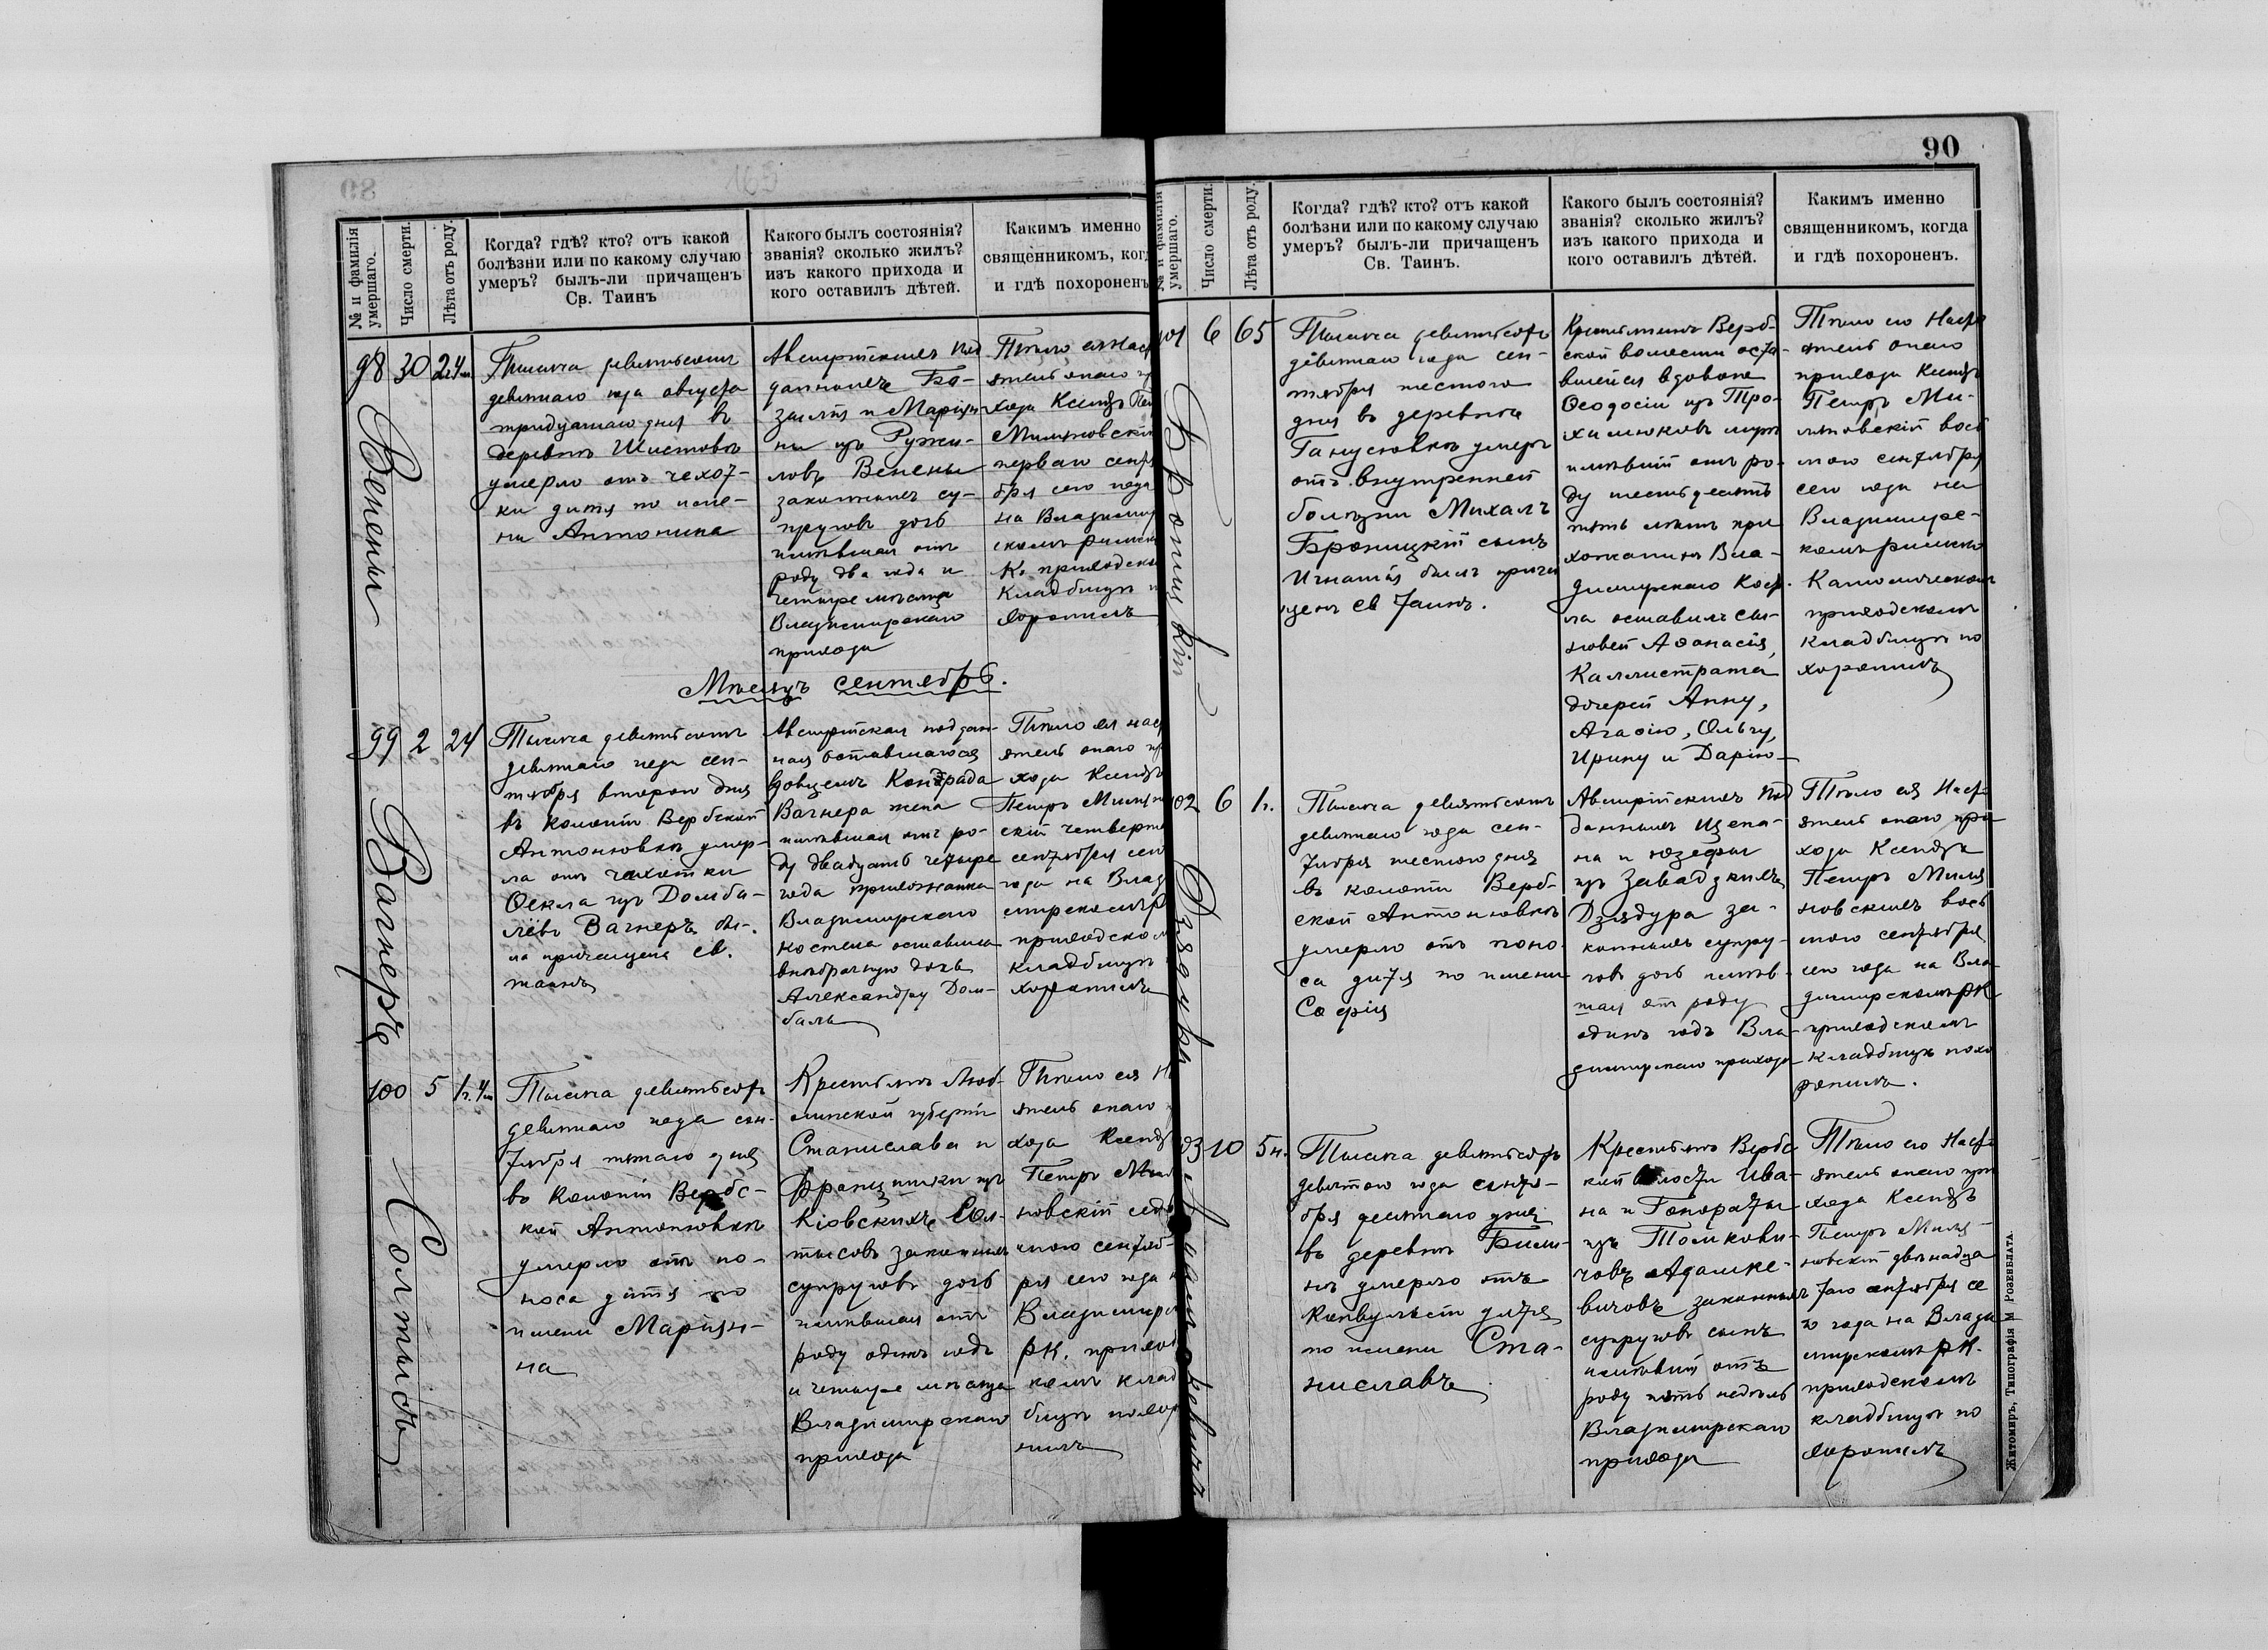 90
№ и фамилія умершаго.
Число смерти.
Лѣта отъ роду.
Когда? гдѣ? кто? отъ какой
болѣзни или по какому случаю
умеръ? былъ-ли причащенъ
Св. Таинъ
Какого былъ состоянія?
званія? сколько жилъ?
изъ какого прихода и
кого оставилъ дѣтей.
Какимъ именно
священникомъ, ког
и гдѣ похороненъ
98
30
2 г 4 м.
Венены
Тысяча девятьсотъ
девятаго года августа
тридцатаго дня въ
деревнѣ Шистовѣ
умерло отъ чехот-
ки дитя по име-
ни Антонина
Австрійскихъ под
данныхъ Ба-
зилія и Маріан-
ны изъ Ружи-
ловъ Венены
законныхъ су-
пруговъ дочь
имѣвшая отъ
роду два года и
четыре мѣсяца
Владимирскаго
прихода
Тѣло ея Наст
ятель онаго пр
хода Ксендзъ Пе
Миляновскій
перваго сентя
бря сего года
на Владимир
скомъ римск
К. приходско
кладбищѣ п
хоронилъ
Мѣсяцъ сентябрь.
99
2
24
Вагнеръ
Тысяча девятьсотъ
девятаго года сен-
тября второго дня
въ колоніи Вербской
Антоновкѣ умер-
ла отъ чахотки
Ѳекла изъ Домба-
лёвъ Вагнеръ бы-
ла причащена св.
таинъ
Австрійская поддан-
ная оставшагося
вдовцемъ Кондрада
Вагнера жена
имѣвшая отъ ро-
ду двадцать четыре
года прихожанка
Владимирскаго
костела оставила
внѣбрачную дочь
Александру Дом-
баль
Тѣло ея наст
ятель онаго пр
хода Ксендзъ
Петръ Милян
скій четверта
сентября сего
года на Влад
мирскомъ Р
приходском
кладбищѣ
хоронилъ
100
5
1 г. 4 м
Солтысъ
Тысяча девятьсотъ
девятаго года сен-
тября пятаго дня
въ колоніи Вербс-
кой Антоновкѣ
умерло отъ по-
носа дитя по
имени Маріан-
на
Крестьянъ Люб-
линской губерніи
Станислава и
Францишки изъ
Кіовскихъ Сол-
тысовъ законныхъ
супруговъ дочь
имѣвшая отъ
роду одинъ годъ
и четыре мѣсяца
Владимирскаго
прихода
Тѣло ея Н
ятель онаго
хода Ксендз
Петръ Мил
новскій седь
мого сентяб-
ря сего года н
Владимирс
РК. приход
комъ клад
бищѣ похор
нилъ
№ и фамилія умершаго.
Число смерти.
Лѣта отъ роду.
Когда? гдѣ? кто? отъ какой
болѣзни или по какому случаю
умеръ? былъ-ли причащенъ
Св. Таинъ.
Какого былъ состоянія?
званія? сколько жилъ?
изъ какого прихода и
кого оставилъ дѣтей.
Какимъ именно
священникомъ, когда
и гдѣ похороненъ.
101
6
65
Броницкій
Тысяча девятьсотъ
девятаго года сен-
тября шестого
дня въ деревнѣ
Ганусовкѣ умеръ
отъ внутренней
болѣзни Михалъ
Броницкій сынъ
Игнатія былъ прича
щенъ св таинъ.
Крестьянинъ Верб-
ской волости оста-
вшейся вдовою
Ѳеодосіи изъ Тро-
химюковъ мужъ
имѣвшій отъ ро-
ду шестьдесятъ
пять лѣтъ при
хожанинъ Вла-
димирскаго Косте
ла оставилъ сы-
новей Аѳанасія,
Каллистрата
дочерей Анну,
Агаѳію, Ольгу,
Ирину и Дарію
Тѣло его Насто
ятель онаго
прихода Ксендзъ
Петръ Ми-
ляновскій вось
мого сентября
сего года на
Владимирс-
комъ римско
Католическомъ
приходскомъ
кладбищѣ по
хоронилъ
102
6
1 г.
Дзядура
Тысяча девятьсотъ
девятаго года сен-
тября шестого дня
въ колоніи Верб-
ской Антоновкѣ
умерло отъ поно-
са дитя по имени
Софія
Австрійскихъ под
данныхъ Щепа-
на и Юзефы
изъ Завадзкихъ
Дзядура за-
конныхъ супру-
говъ дочь имѣв-
шая отъ роду
одинъ годъ Вла-
димирскаго прихода
Тѣло ея Насто
ятель онаго при
хода Ксендзъ
Петръ Миля
новскихъ вось
мого сентября
сего года на Вла
димирскомъ РК
приходскомъ
кладбищѣ похо
ронилъ.
103
10
5 н.
Адамкевичъ
Тысяча девятьсотъ
девятого года сентя-
бря десятаго дня
въ деревнѣ Били-
нѣ умерло отъ
конвульсіи дитя
по имени Ста-
ниславъ
Крестьянъ Вербс
кой волости Ива-
на и Гонораты
изъ Томкови-
човъ Адамке-
вичовъ законныхъ
супруговъ сынъ
имѣвшій отъ
роду пять недѣль
Владимирскаго
прихода
Тѣло его Насто
ятель онаго при
хода Ксендзъ
Петръ Миля-
новскій двѣнадца
таго сентября се
го года на Влади
мирскомъ РК.
приходскомъ
кладбищѣ по
хоронилъ
Житомиръ, Типографія М Розенблата.